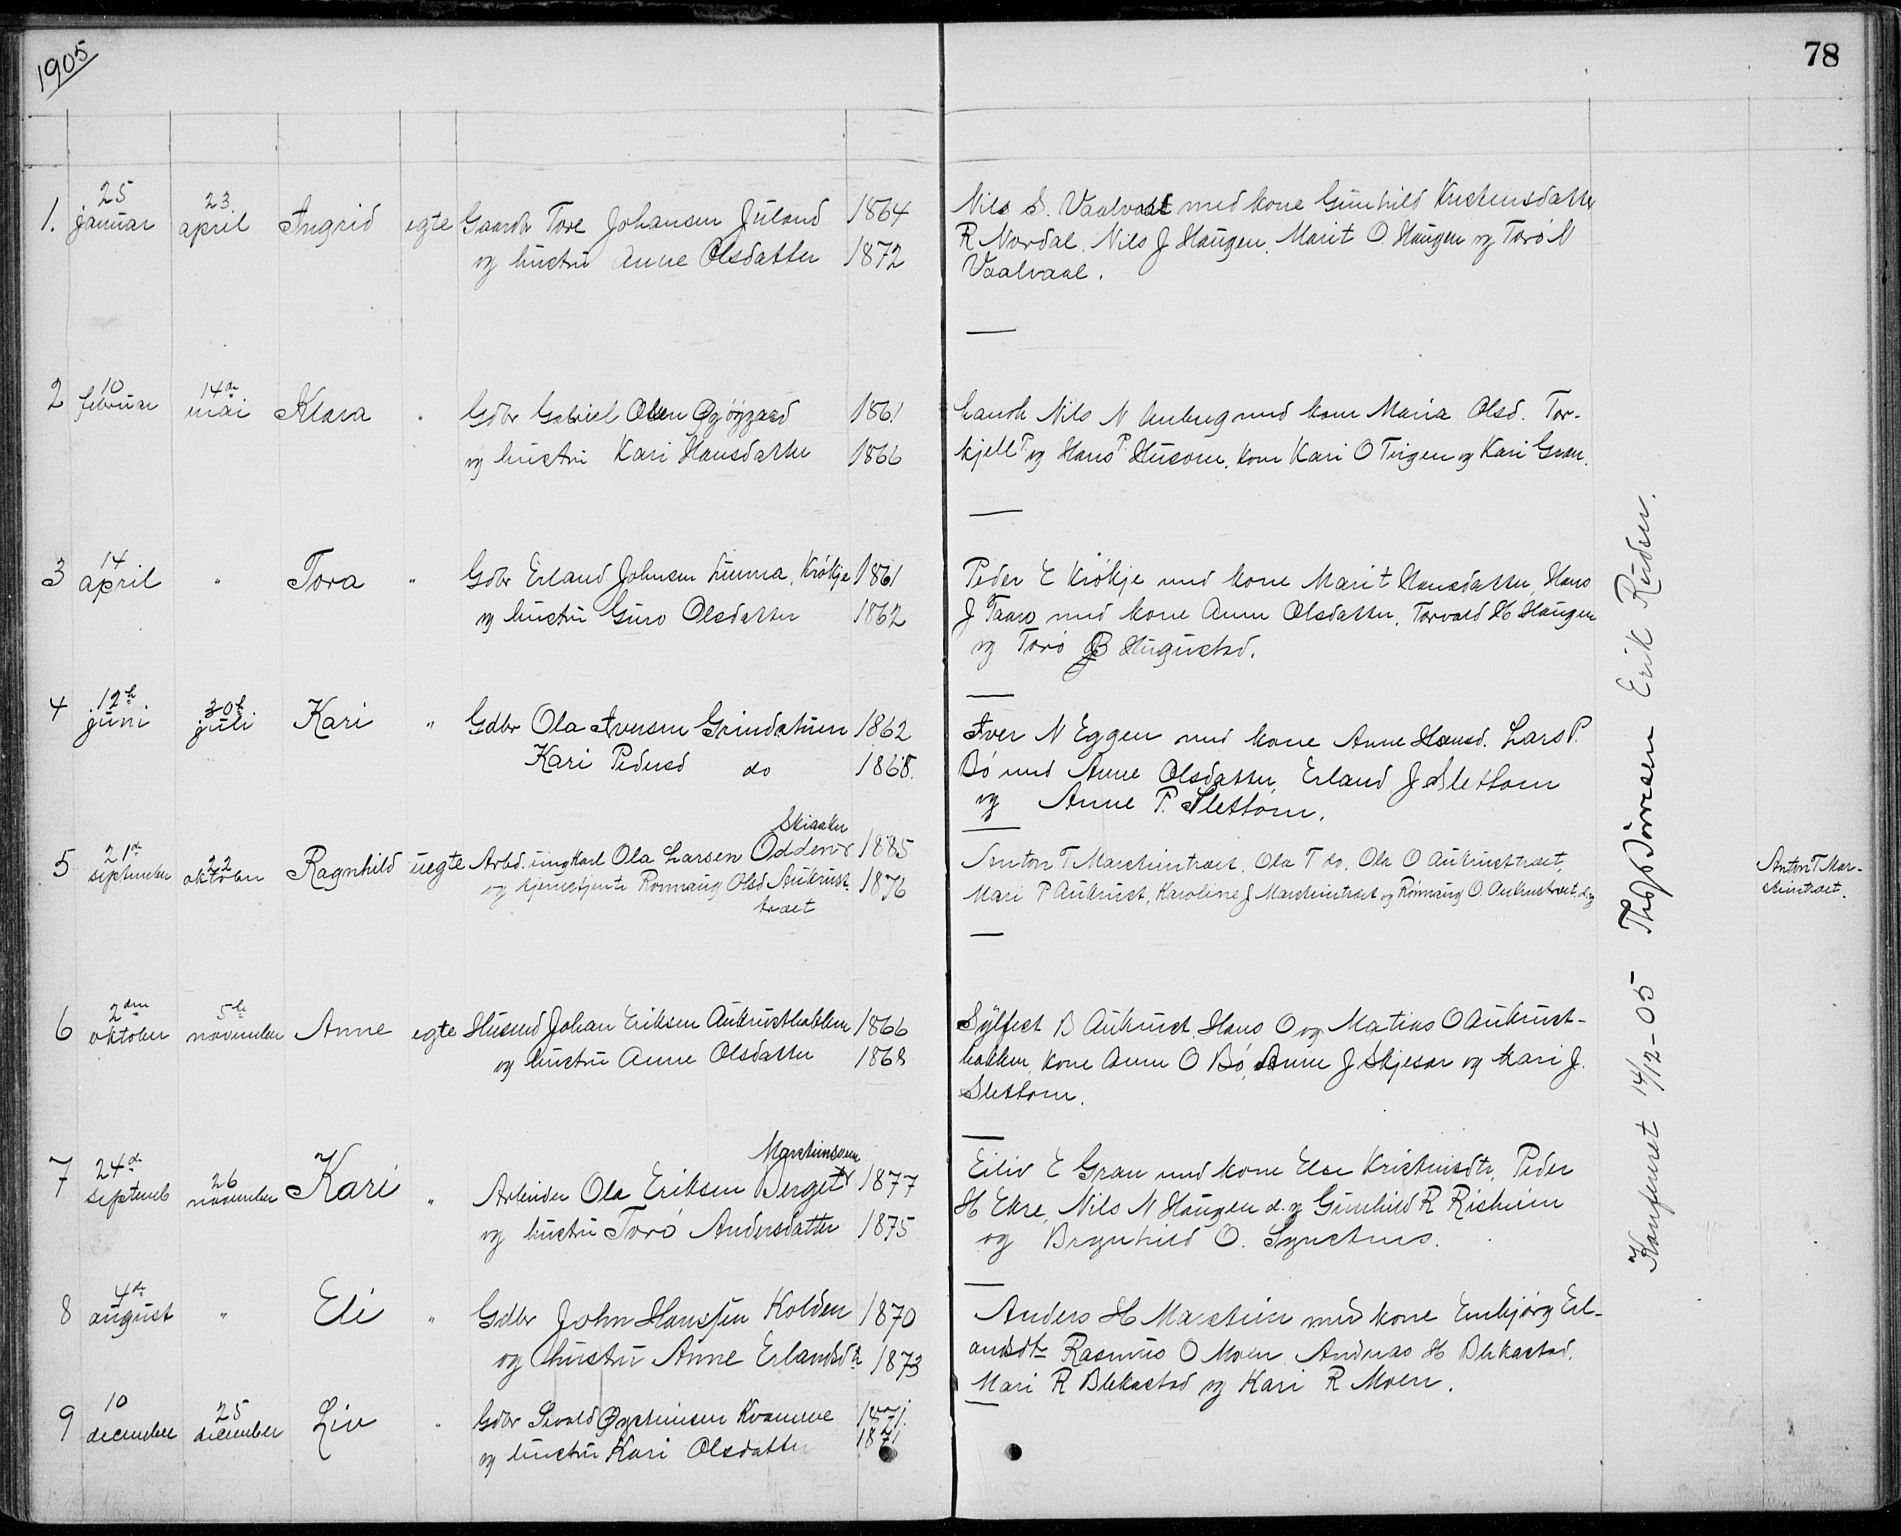 1905
78
1. 25 januar 23 april Ingrid egte Gaardbr Tore Johansen Juland 1864
og hustru Anne Olsdatter 1872
Nils S. Vaalvaal med kone Gunhild Kristensdatter
R Nordal, Nils J Haugen, Marit O. Haugen og Torø N
Vaalvaal.
2 10 februar 14de mai Klara " Gdbr Gabriel Olsen 1861
og hustru Kari Hansdatter 1866
Nils N med kone Maria Olsd. Tor-
kjell P og Hans P Husom, kone Kari O Tirgen og Kari Gran.
3 14 april " Tora " Gdbr Erland Johnsen Krökje 1861
og hustru Guro Olsdatter 1862
Peder E Krökje med kone Marit Hansdatter, Hans
J Taaro med kone Anne Olsdatter, Torvald H Haugen
og Torö B Hugustad.
4 12te juni 30te juli Kari " Gdbr Ola Iversen Grindstuen 1862
Kari Pedersd do 1868.
Iver N Eggen med kone Anne Hansd. Lars P.
Bö med Anne Olsdatter, Erland J Slettom
og Anne P. Slettom.
5 21de september 22 oktober Ragnhild uegte Arbd. ungkarl Ola Larsen Odden Skiaaker 1885
og tjenestjente Rønnaug Olsd Aukrust- 1876
træet
Anton T Marsteintræet, Ola T do, Ola O Aukrusttræet,
Mari P Aukrust, Karoline J Marsteintræet og Rønnaug O. Aukrusttræet. d.y
Anton T Mar-
steintræet.
6 2den oktober 5te november Anne egte Husmd Johan Eriksen Aukrustbakken 1866
og hustru Anne Olsdatter 1868
Sylfest B Aukrust, Hans O og Matias O Aukrust-
bakken, kone Anne O Bö, Anne J Skjesar og Kari J.
Slettom.
7 24de septemb 26 november Kari " Arbeider Ola Eriksen Berget 1877
og hustru Torö Andersdatter 1875
Eiliv E Gran med kone Else Kristensdtr, Peder
H Ekre, Nils N Haugen d. y Gunhild R Risheim
og Brynhild O. Synstnes.
8 4de august " Eli " Gdbr John Hanssen Kolden 1870
og hustru Anne Erlandsdtr 1873
Anders H Marstein med kone Embjørg Erl-
andsdtr Rasmus O Moen Andreas H Blekastad.
Mari R Blekastad og Kari R Moen.
9 10 december 25 december Liv " Gdbr Sivald Øysteinsen Kvamme 1871.
og hustru Kari Olsdatter 1871
Konfereret 14/12-05 Erik Rudsen.